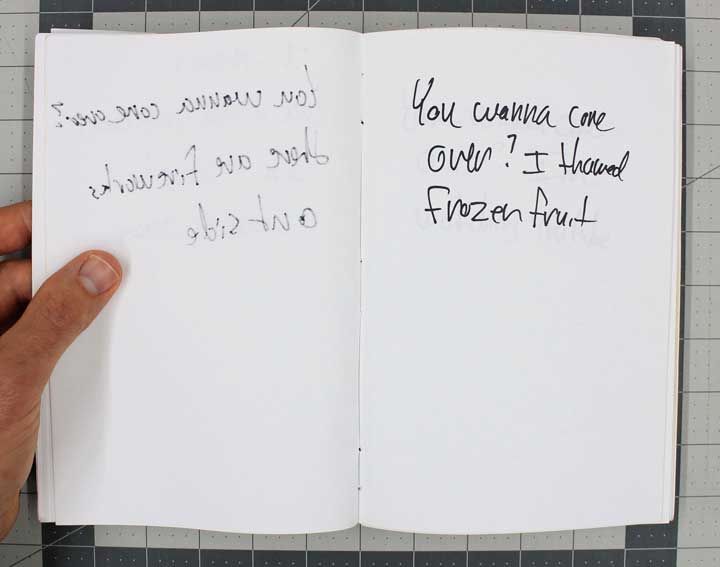 You wanna come over?
there are fireworks
outside
You wanna come
over? I thawed
frozen fruit